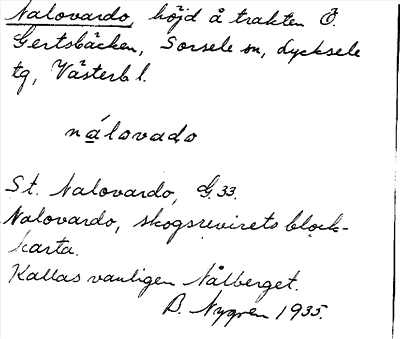 Nalovardo, höjd å trakten Ö.
Gertsbäcken, Sorsele sn, Lycksele
tg, Västerb l.
nálovado
St. Nalovardo, G. 33.
Nalovardo, skogsrevirets block-
karta.
Kallas vanligen Nålberget.
B. Nygren 1935.